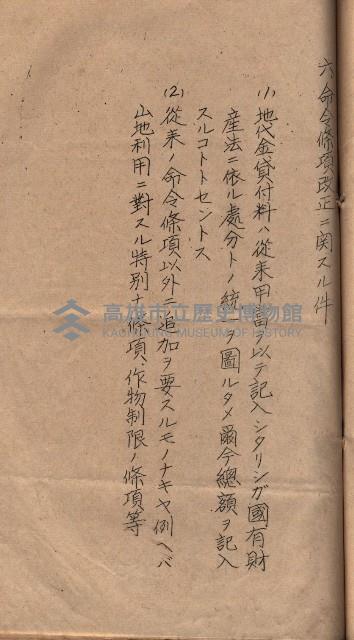 六、命令條項改正ニ関スル件
(1) 地代金貸付料ハ從来甲當ヲ以テ記入シタリシガ國有財
産法ニ依ル處分トノ統一ヲ圖ルタメ爾今總額ヲ記入
スルコトトセントス
(2) 從来ノ命令條項以外ニ追加ヲ要スルモノナキヤ例ヘバ
山地利用ニ對スル特別ナ條項、作物制限ノ條項等
高雄市立歷史博物館
KAOHSIUNG MUSEUM OF HISTORY